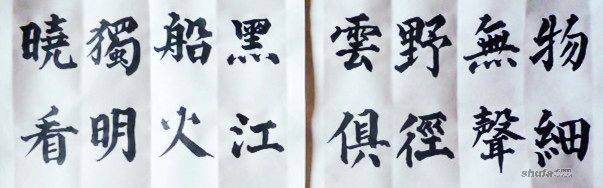 物細
無聲
野徑
雲俱
黑江
船火
獨明
曉看
shufa